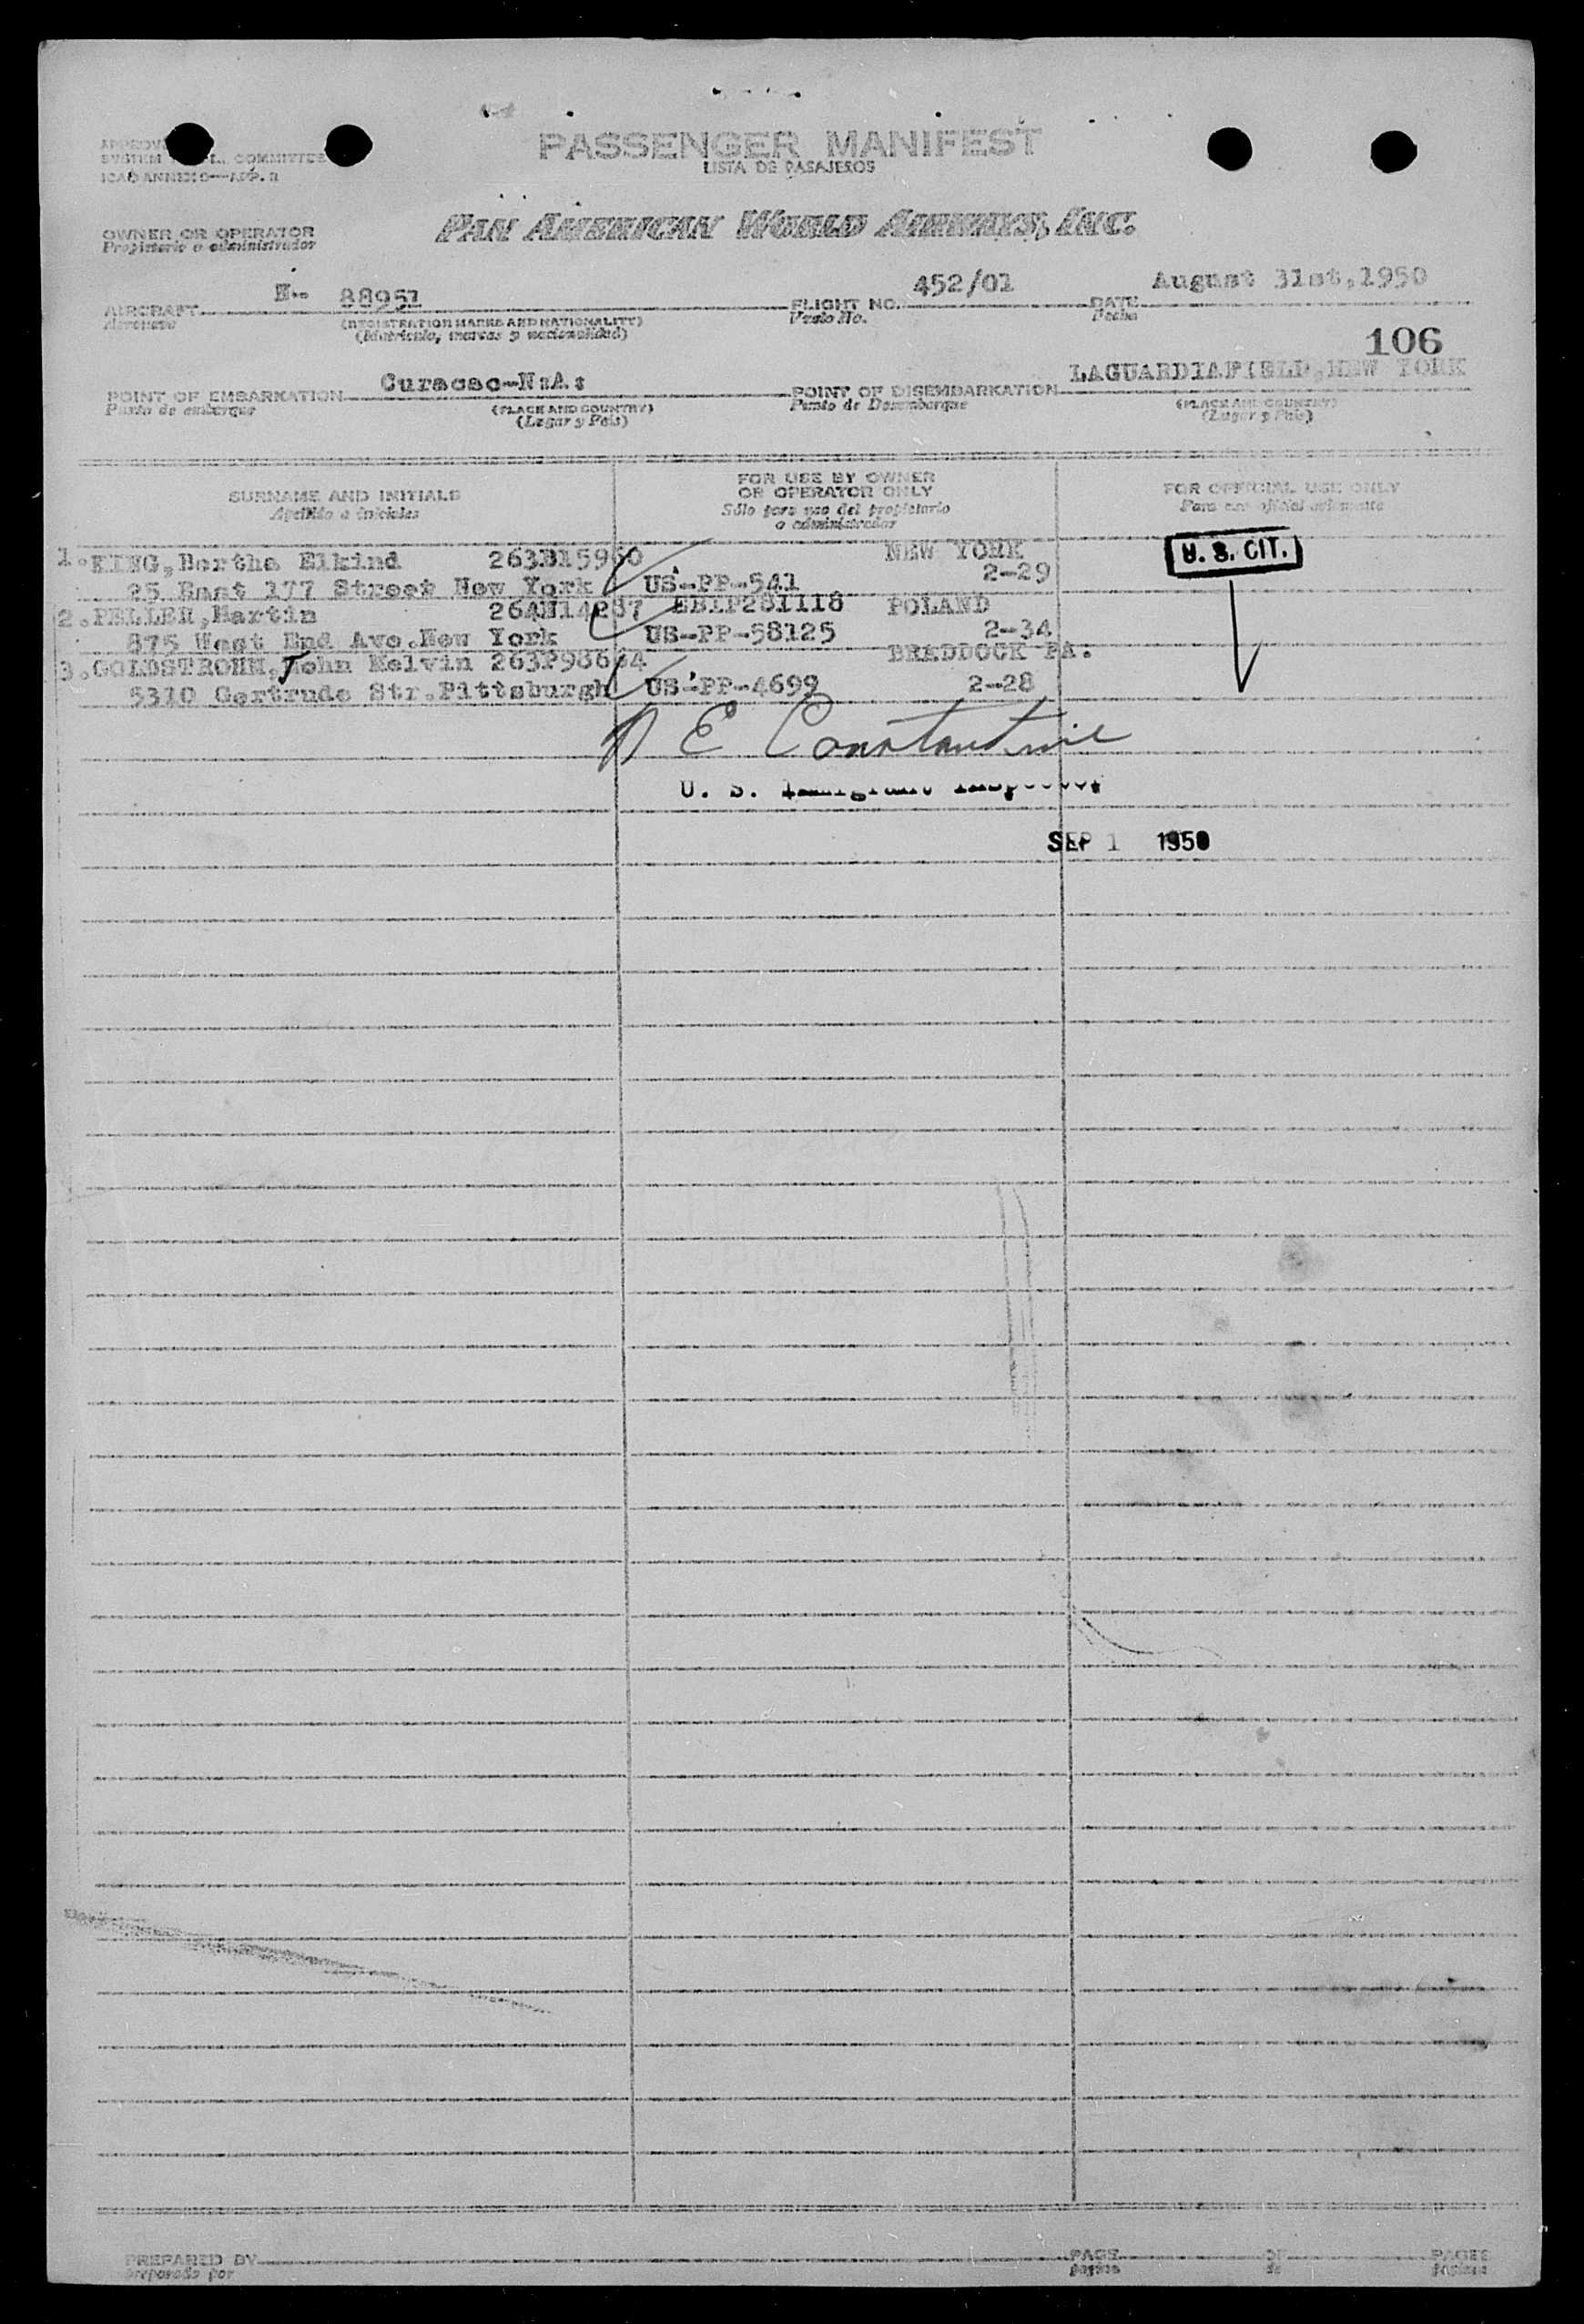 PASSENGER MANIFEST
LISTA DE PASAJEROS
COMMITTEE
ICAO ANNEX 9—APP.
OWNER OR OPERATOR
Propietario o administrador
PAN AMERICAN WORLD AIRWAYS, INC.
AIRCRAFT N- 88951 FLIGHT NO. 452/01 DATE August 31st,1950
Aeronave (REGISTRATION MARKS AND NATIONALITY) Vuelo No. Fecha
(Matrícula, marcas y nacionalidad)
106
POINT OF EMBARKATION Curacao-N:A: POINT OF DISEMBARKATION LAGUARDIAFIELD,NEW YORK
Punto de embarque (PLACE AND COUNTRY) Punto de Desembarque (PLACE AND COUNTRY)
(Lugar y País) (Lugar y País)
SURNAME AND INITIALS FOR USE BY OWNER OR OPERATOR ONLY FOR OFFICIAL USE ONLY
Apellido e iniciales Sólo para uso del propietario o administrador Para uso oficial solamente
1. KING,Bertha Elkind 263B15960 NEW YORK U. S. CIT.
25 East 177 Street New York US-PP-541 2-29
2. PELLER,Martin 26AH14287 EBIP281118 POLAND
875 West End Ave.New York US-PP-58125 2-34
3. GOLDSTROHM,John Melvin 263P98664 BRADDOCK PA.
5310 Gertrude Str.Pittsburgh US-PP-4699 2-28
E Constantine
U. S. Immigrant Inspector
SEP 1 1950
PREPARED BY PAGE OF PAGES
preparado por página de páginas